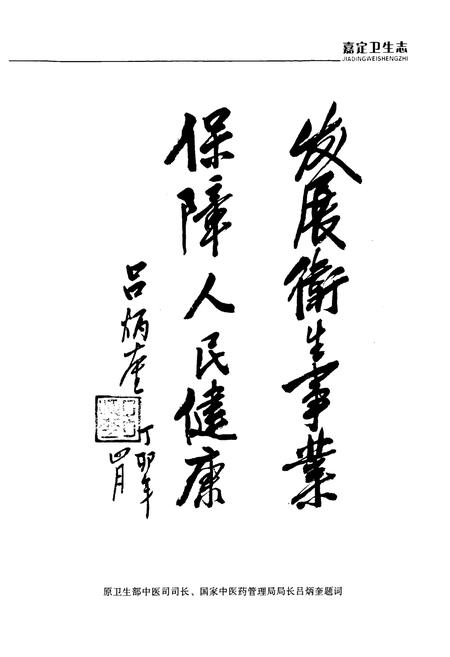 嘉定卫生志
JIADINGWEISHENGZHI
发展衛生事業
保障人民健康
吕炳奎
丁卯年
四月
原卫生部中医司司长、国家中医药管理局局长吕炳奎题词